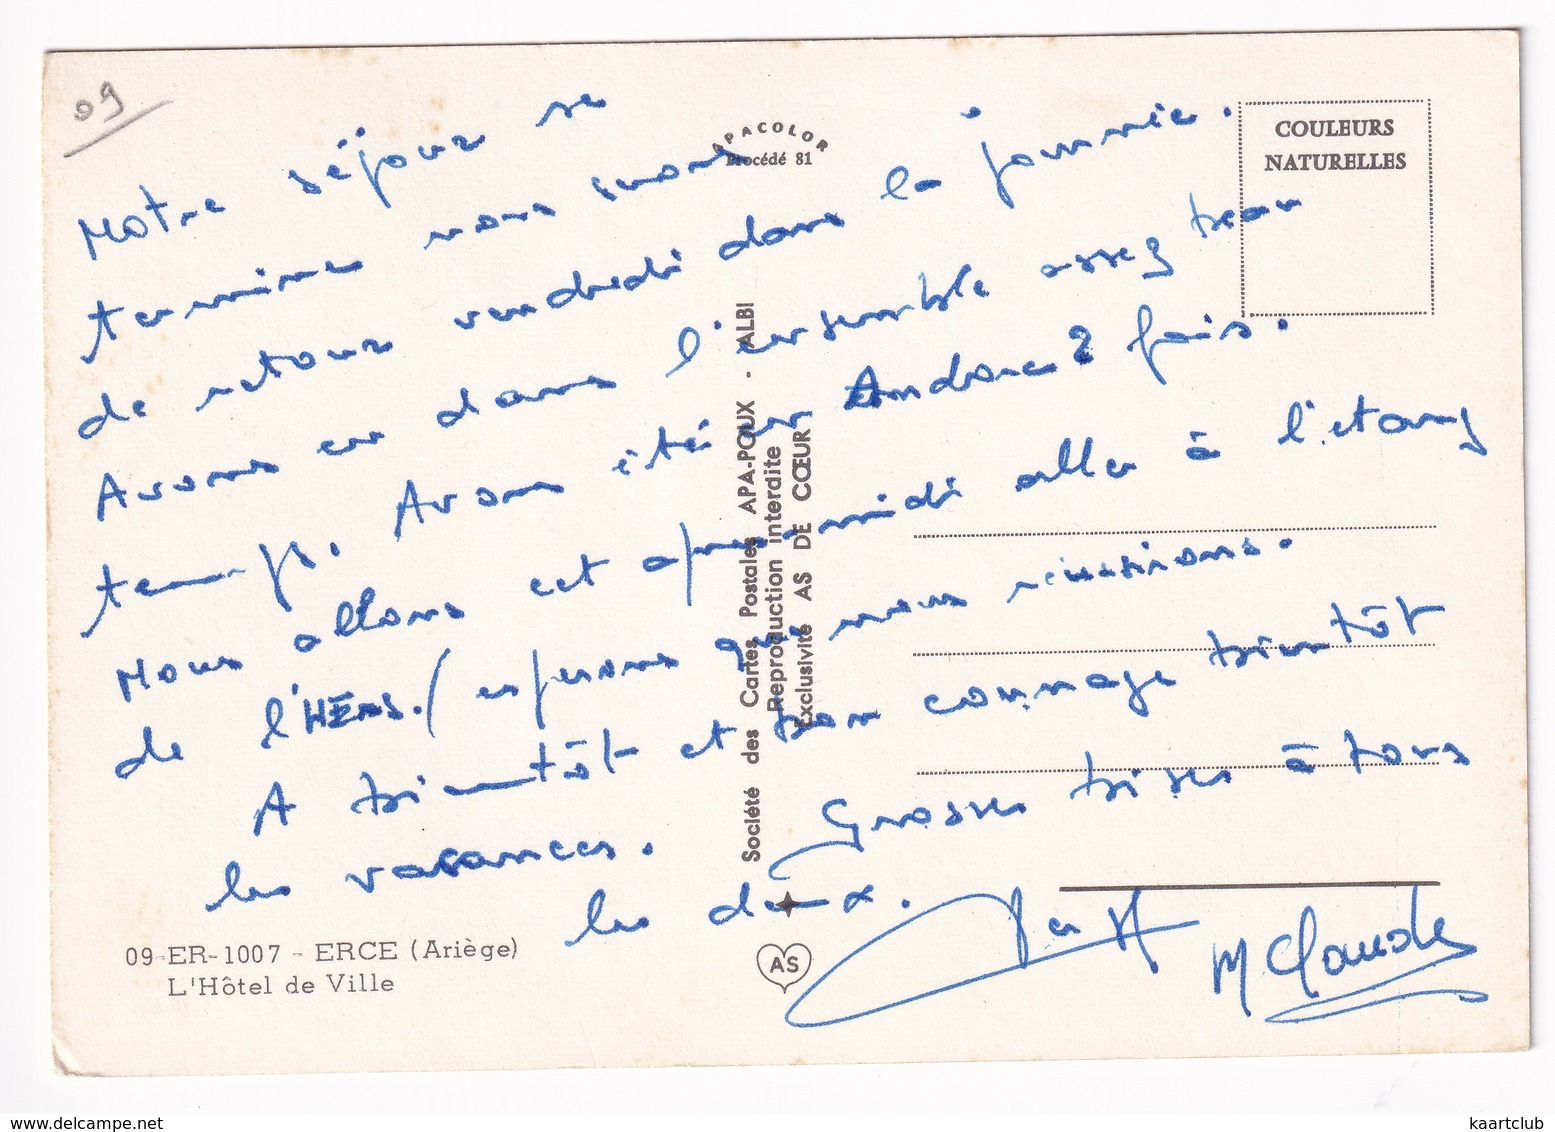 09
Notre séjour se
termine nous serons
de retour vendredi dans la journée.
Avons eu dans l'ensemble assez beau
temps. Avons été en Andorre 2 fois.
Nous allons cet après midi aller à l'étang
de l'HERS. (espérons que nous réussirons.
A bientôt et bon courage bientôt
les vacances. Grosses bises à tous
les deux.
M Claude
APACOLOR
Procédé 81
COULEURS
NATURELLES
Société des Cartes Postales APA-POUX - ALBI
Reproduction interdite
Exclusivité AS DE CŒUR
AS
09-ER-1007 - ERCE (Ariège)
L'Hôtel de Ville
www.delcampe.net
kaartclub